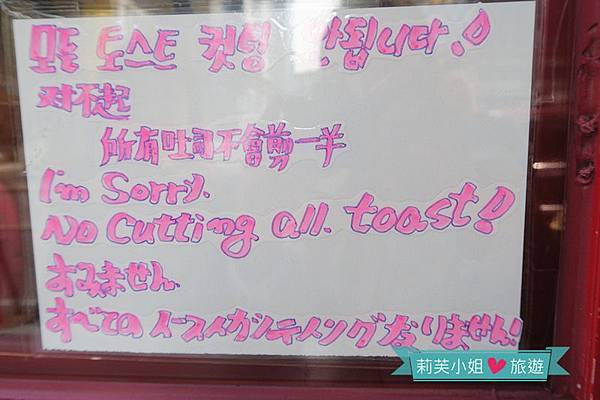 모든 토스트 컷팅 안됩니다!
对不起
所有吐司不會剪一半
I'm Sorry.
No Cutting all. toast!
すみません
すべての イースイカンティングなりません!
莉芙小姐 旅遊